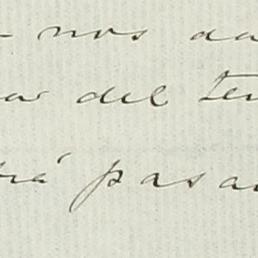 nos da
ar del ten
rá pasar